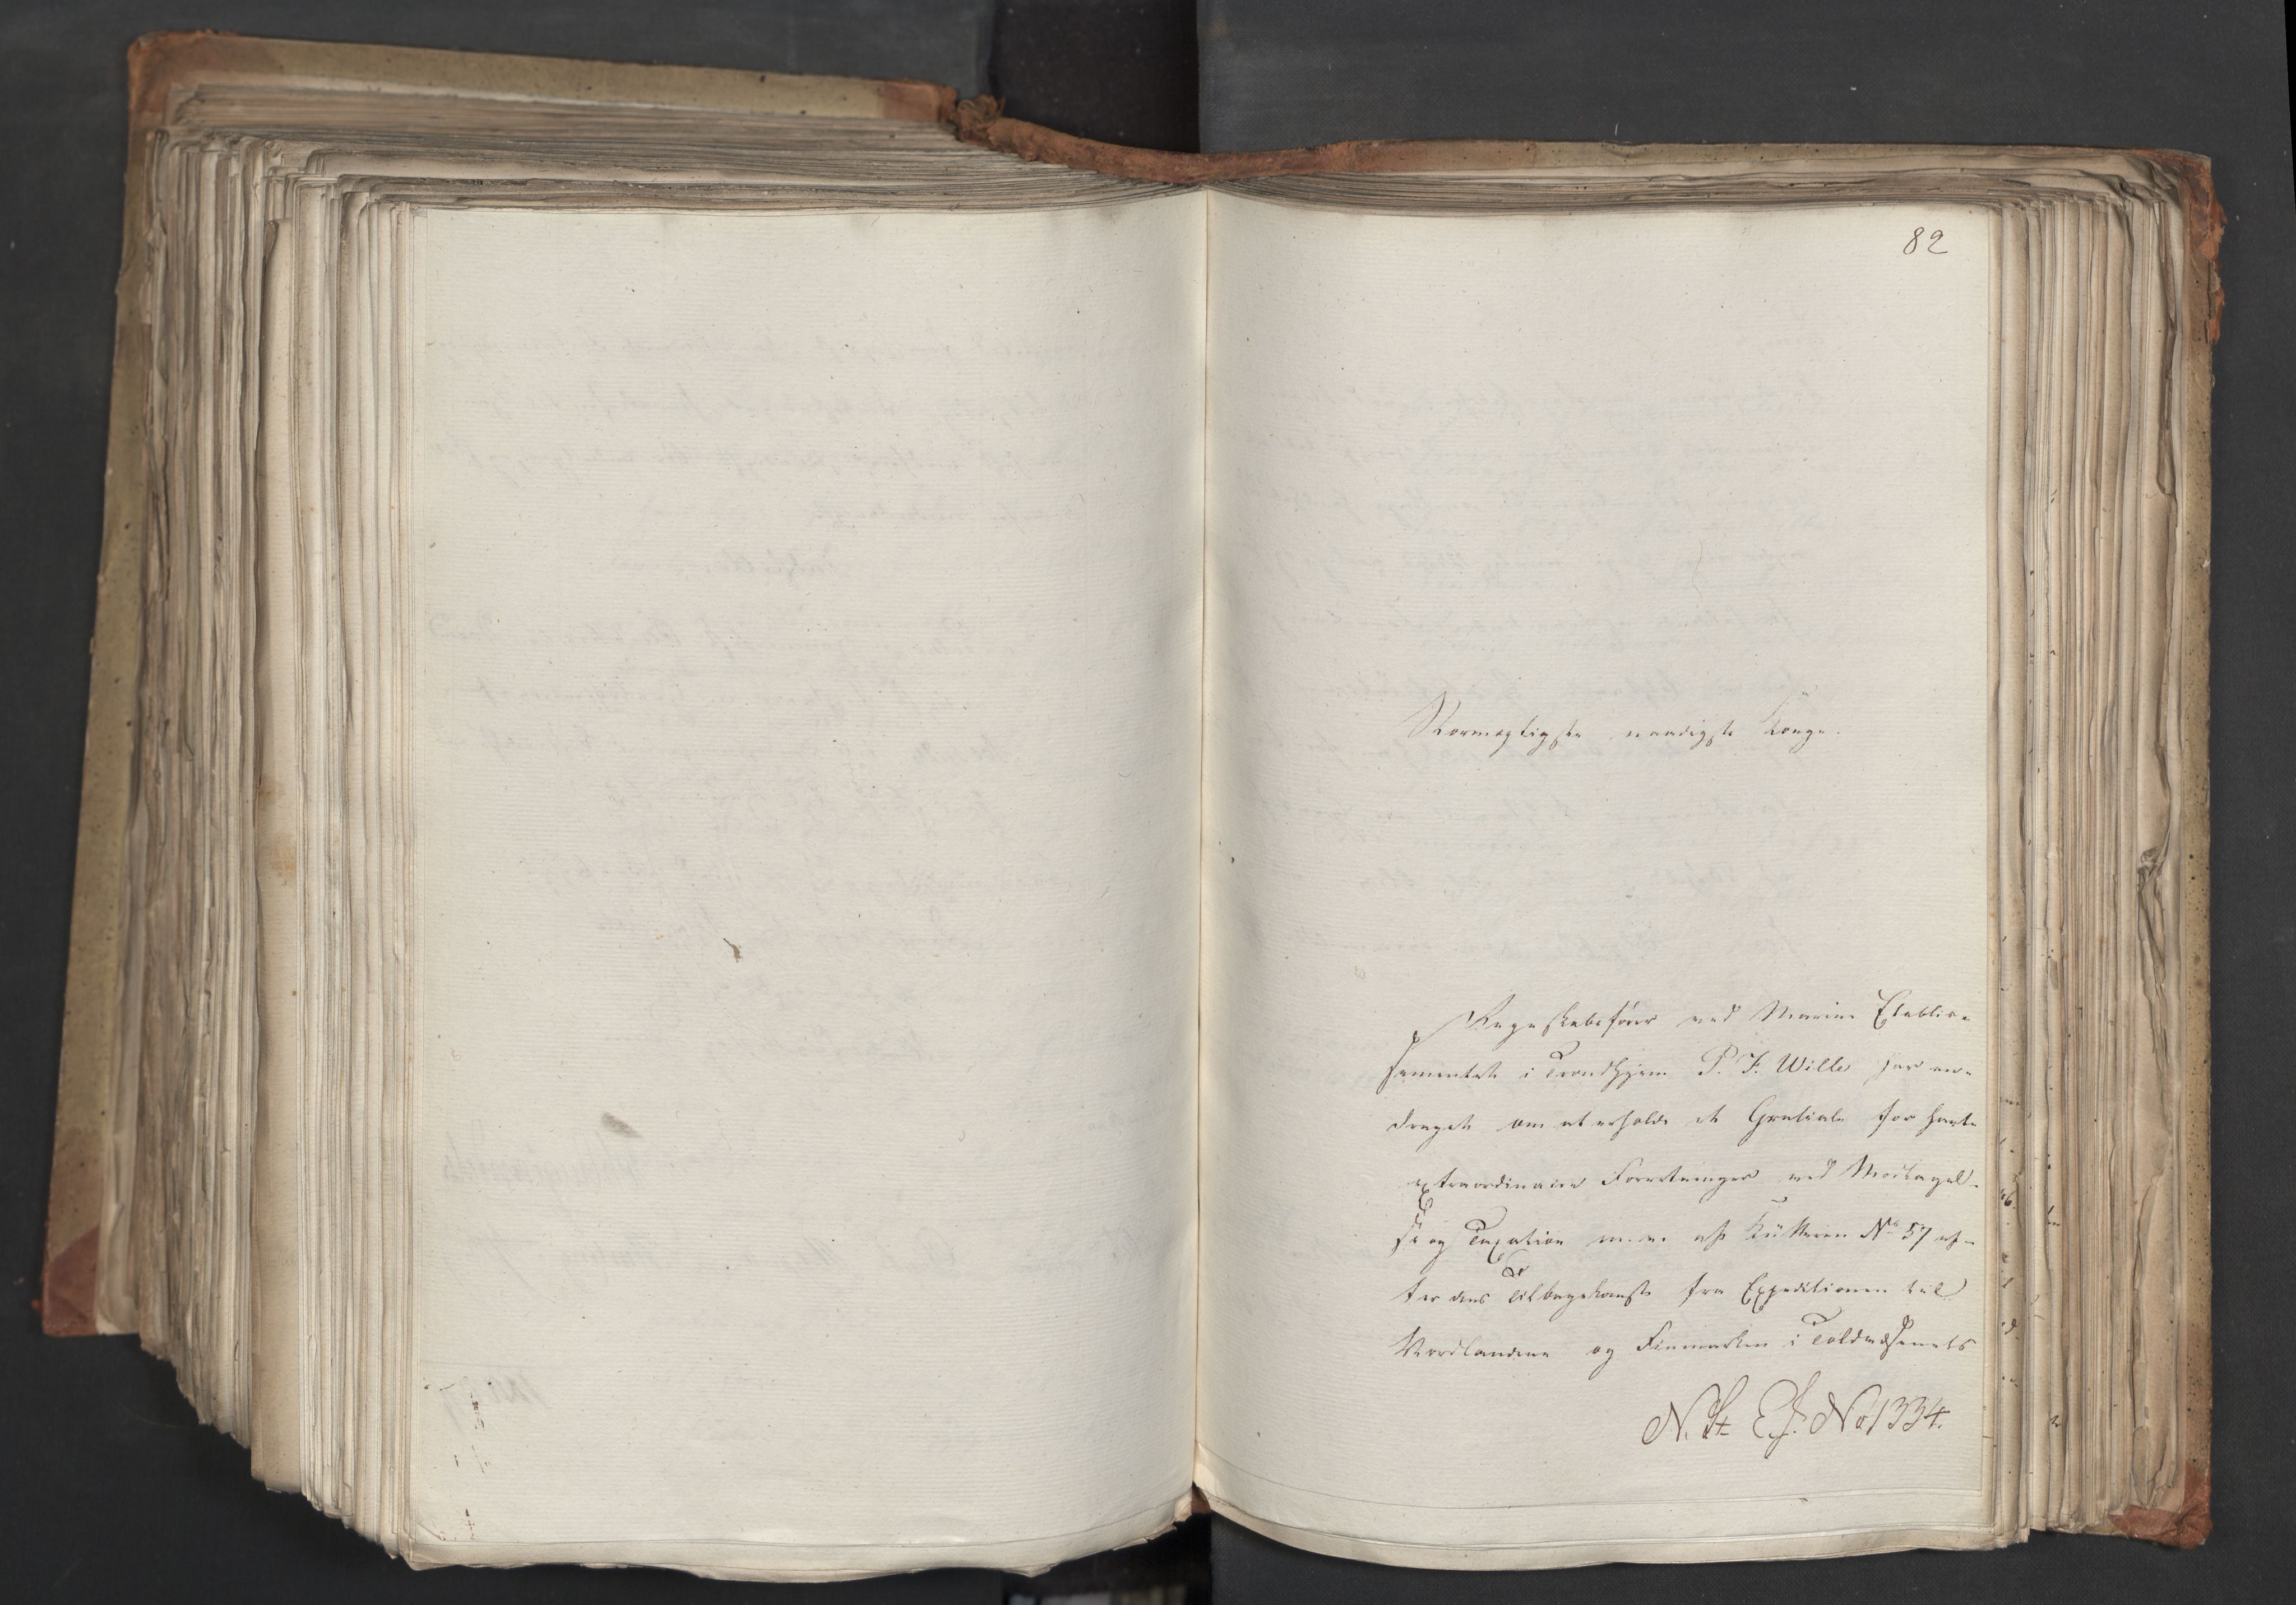 82
Stormægtigste naadigste Konge.
Regnskabsfører ved Marine Etablis=
sementet i Trondhjem P. F. Wille har an=
draget om at erholde et Gratiale for havte
extraordinaire Forretninger ved Modtagel=
se og Taxation m. m. af Kutteren No 57 ef=
ter dens Tilbagekomst fra Expeditionen til
Nordlandene og Finmarken i Toldvæsenets
N. St. E J. No 1334.